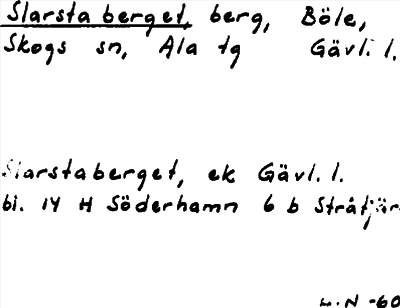 Slarstaberget, berg, Böle,
Skogs sn, Ala tg Gävl. l.
Slarstaberget, ek Gävl. l.
bl. 14 H Söderhamn 6 b Stråtjär
H.N -60